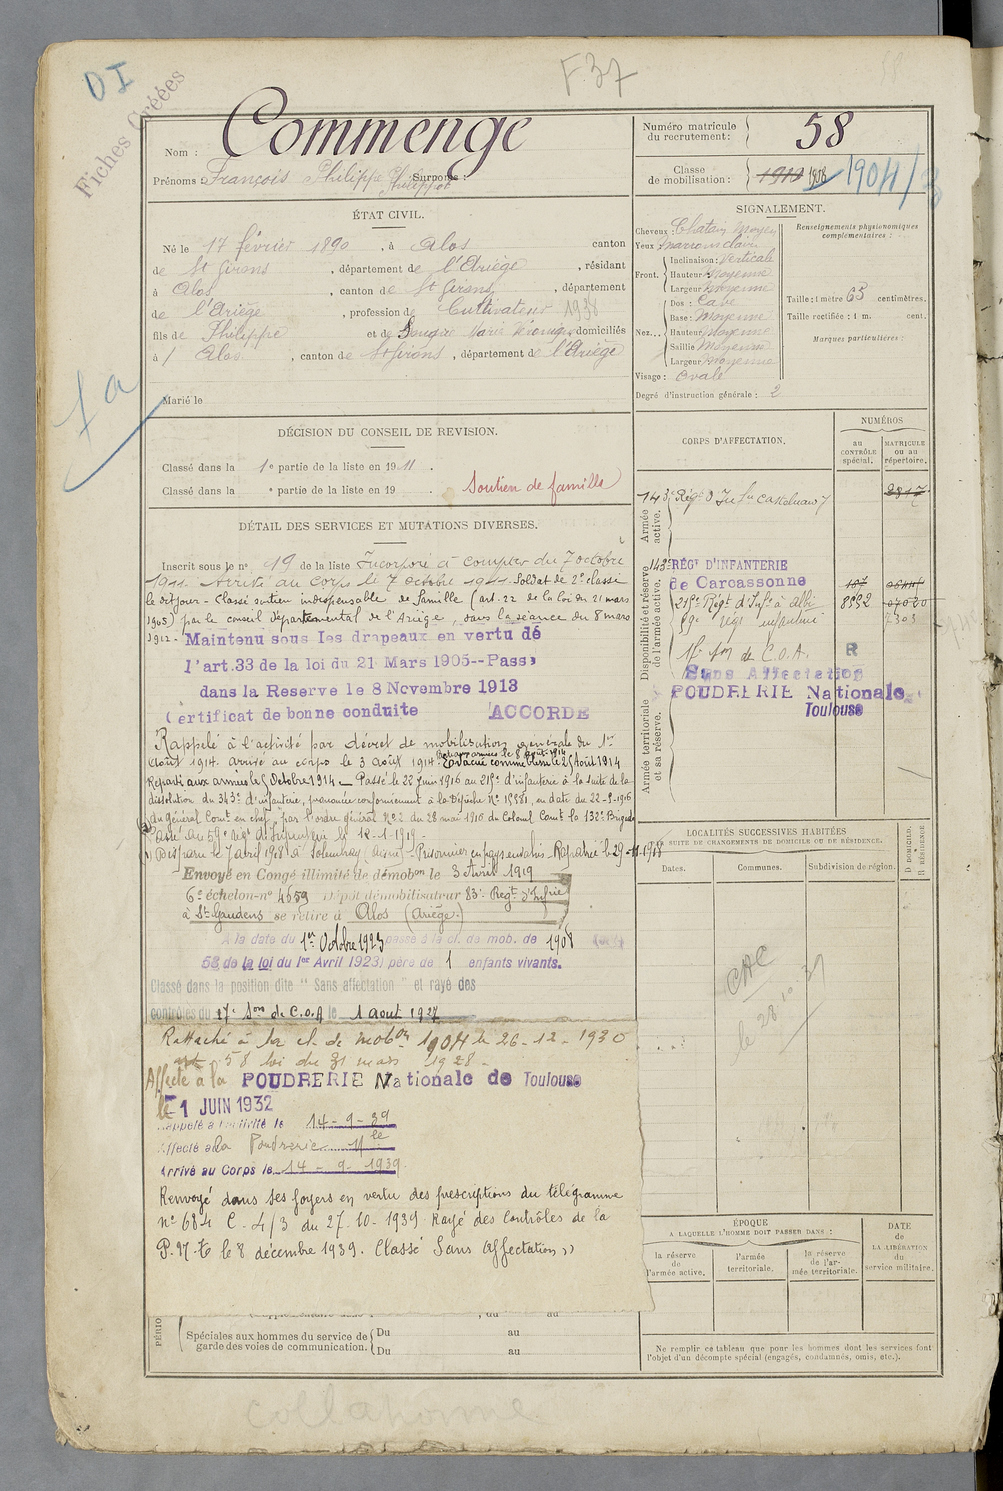 DI
F.37
Fiches Créées
Nom : Commenge
Prénoms : François Philippe Surnoms :
Philippot
Numéro matricule du recrutement : 58
Classe de mobilisation : 1910 1908 1904/3
ÉTAT CIVIL.
Né le 17 février 1890, à Alos canton
de St Girons, département de l'Ariège, résidant
à Alos, canton de St Girons, département
de l'Ariège, profession de Cultivateur 1938
fils de Philippe et de Marie domiciliés
à Alos, canton de St Girons, département de l'Ariège
Marié le
SIGNALEMENT.
Cheveux : Chatain moyen
Yeux marrons clair
Front. Inclinaison : Verticale
Hauteur : Moyenne
Largeur Moyenne
Nez... Dos : Cave
Base : Moyenne
Hauteur Moyenne
Saillie Moyenne
Largeur Moyenne
Visage : Ovale
Degré d'instruction générale : 2
Renseignements physionomiques complémentaires :
Taille : 1 mètre 65 centimètres.
Taille rectifiée : 1 m. cent.
Marques particulières :
1a
DÉCISION DU CONSEIL DE REVISION.
Classé dans la 1e partie de la liste en 1911.
Classé dans la e partie de la liste en 19 .
Soutien de famille
CORPS D'AFFECTATION.
NUMÉROS
au CONTRÔLE spécial.
MATRICULE ou au répertoire.
Armée active.
143e Régt d'Infie Castelnaudary
Disponibilité et réserve de l'armée active.
143e RÉGt D'INFANTERIE
de Carcassonne 187
215e Régt d'Infie à Albi 8592 07020
59e Régt infanterie 7303
17e Son de C.O.A. R
Sans Affectation
POUDRERIE Nationale
Toulouse
Armée territoriale et sa réserve.
DÉTAIL DES SERVICES ET MUTATIONS DIVERSES.
Inscrit sous le no 19 de la liste Incorporé à compter du 7 octobre
1911. Arrivé au corps le 7 octobre 1911. Soldat de 2e classe
le dit jour - Classé soutien indispensable de famille (art. 22 de la loi du 21 mars
1905) par le conseil départemental de l'Ariège, dans la séance du 8 mars
1912 - Maintenu sous les drapeaux en vertu de
l'art.33 de la loi du 21 Mars 1905--Passé
dans la Reserve le 8 Novembre 1913
Certificat de bonne conduite ACCORDE
Rappelé à l'activité par décret de mobilisation générale du 1er
Août 1914. arrivé au corps le 3 août 1914. Evacué comme blessé le 25 Août 1914
Reparti aux armées le 5 Octobre 1914 - Passé le 22 Juin 1916 au 215e d'infanterie à la suite de la
dissolution du 343e d'infanterie, prononcée conformément à la Dépêche No 15981, en date du 22-5-1916
du général Comt en chef, par l'ordre général No 2 du 28 mai 1916 du Colonel Comt la 132e Brigade
Passé au 59e Régt d'Infanterie le 12-1-1919 -
Disparu le 7 avril 1918 à (Aisne) - Prisonnier en pays envahis - Rapatrié le 29-11-1918
Envoyé en Congé illimité de démobon le 3 Avril 1919
6e échelon-no 4659 Dépôt démobilisateur 83e Regt d'Infrie
à St Gaudens se retire à Alos (Ariège)
A la date du 1er Octobre 1923 passé à la cl. de mob. de 1908
58 de la loi du 1er Avril 1923) père de 1 enfants vivants.
Classé dans la position dite " Sans affectation " et rayé des
contrôles du 17e Son de C.O.A le 1 aout 1927
Rattaché à la cl. de mobon 1904 le 26-12-1930
art 58 loi du 31 mars 1928 -
Affecté à la POUDRERIE Nationale de Toulouse
le 1 JUIN 1932
Rappelé à l'activité le 14-9-39
Affecté à la Poudrerie Nle
Arrivé au Corps le 14-9-1939
Renvoyé dans ses foyers en vertu des prescriptions du télégramme
no 684 C-4/3 du 27-10-1939 Rayé des Contrôles de la
P.N.T. le 8 décembre 1939. Classé "Sans affectation"
LOCALITÉS SUCCESSIVES HABITÉES
PAR SUITE DE CHANGEMENTS DE DOMICILE OU DE RÉSIDENCE.
Dates.
Communes.
Subdivision de région.
D DOMICILE.
R RÉSIDENCE
CAC
le 28-10-37
ÉPOQUE
A LAQUELLE L'HOMME DOIT PASSER DANS :
la réserve de l'armée active.
l'armée territoriale.
la réserve de l'armée territoriale.
DATE de LA LIBÉRATION du service militaire.
PÉRIO
Spéciales aux hommes du service de garde des voies de communication.
Du au
Du au
Ne remplir ce tableau que pour les hommes dont les services font
l'objet d'un décompte spécial (engagés, condamnés, omis, etc.).
collationné